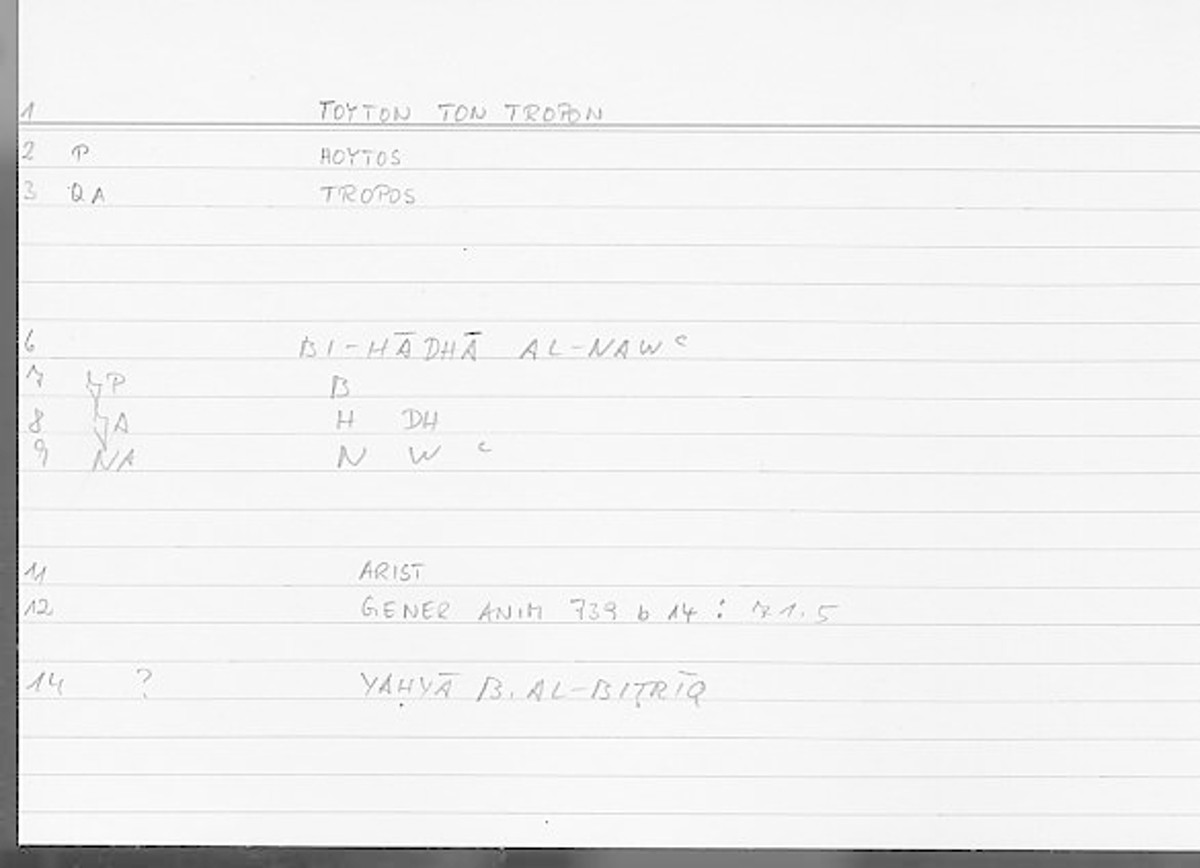 1 TOYTON TON TROPON
2 P HOYTOS
3 QA TROPOS
6 BI-HĀDHĀ AL-NAWᶜ
7 P B
8 A H DH
9 NA N W ᶜ
11 ARIST
12 GENER ANIM 739 b 14 : 71.5
14 ? YAḤYĀ B. AL-BIṬRĪQ